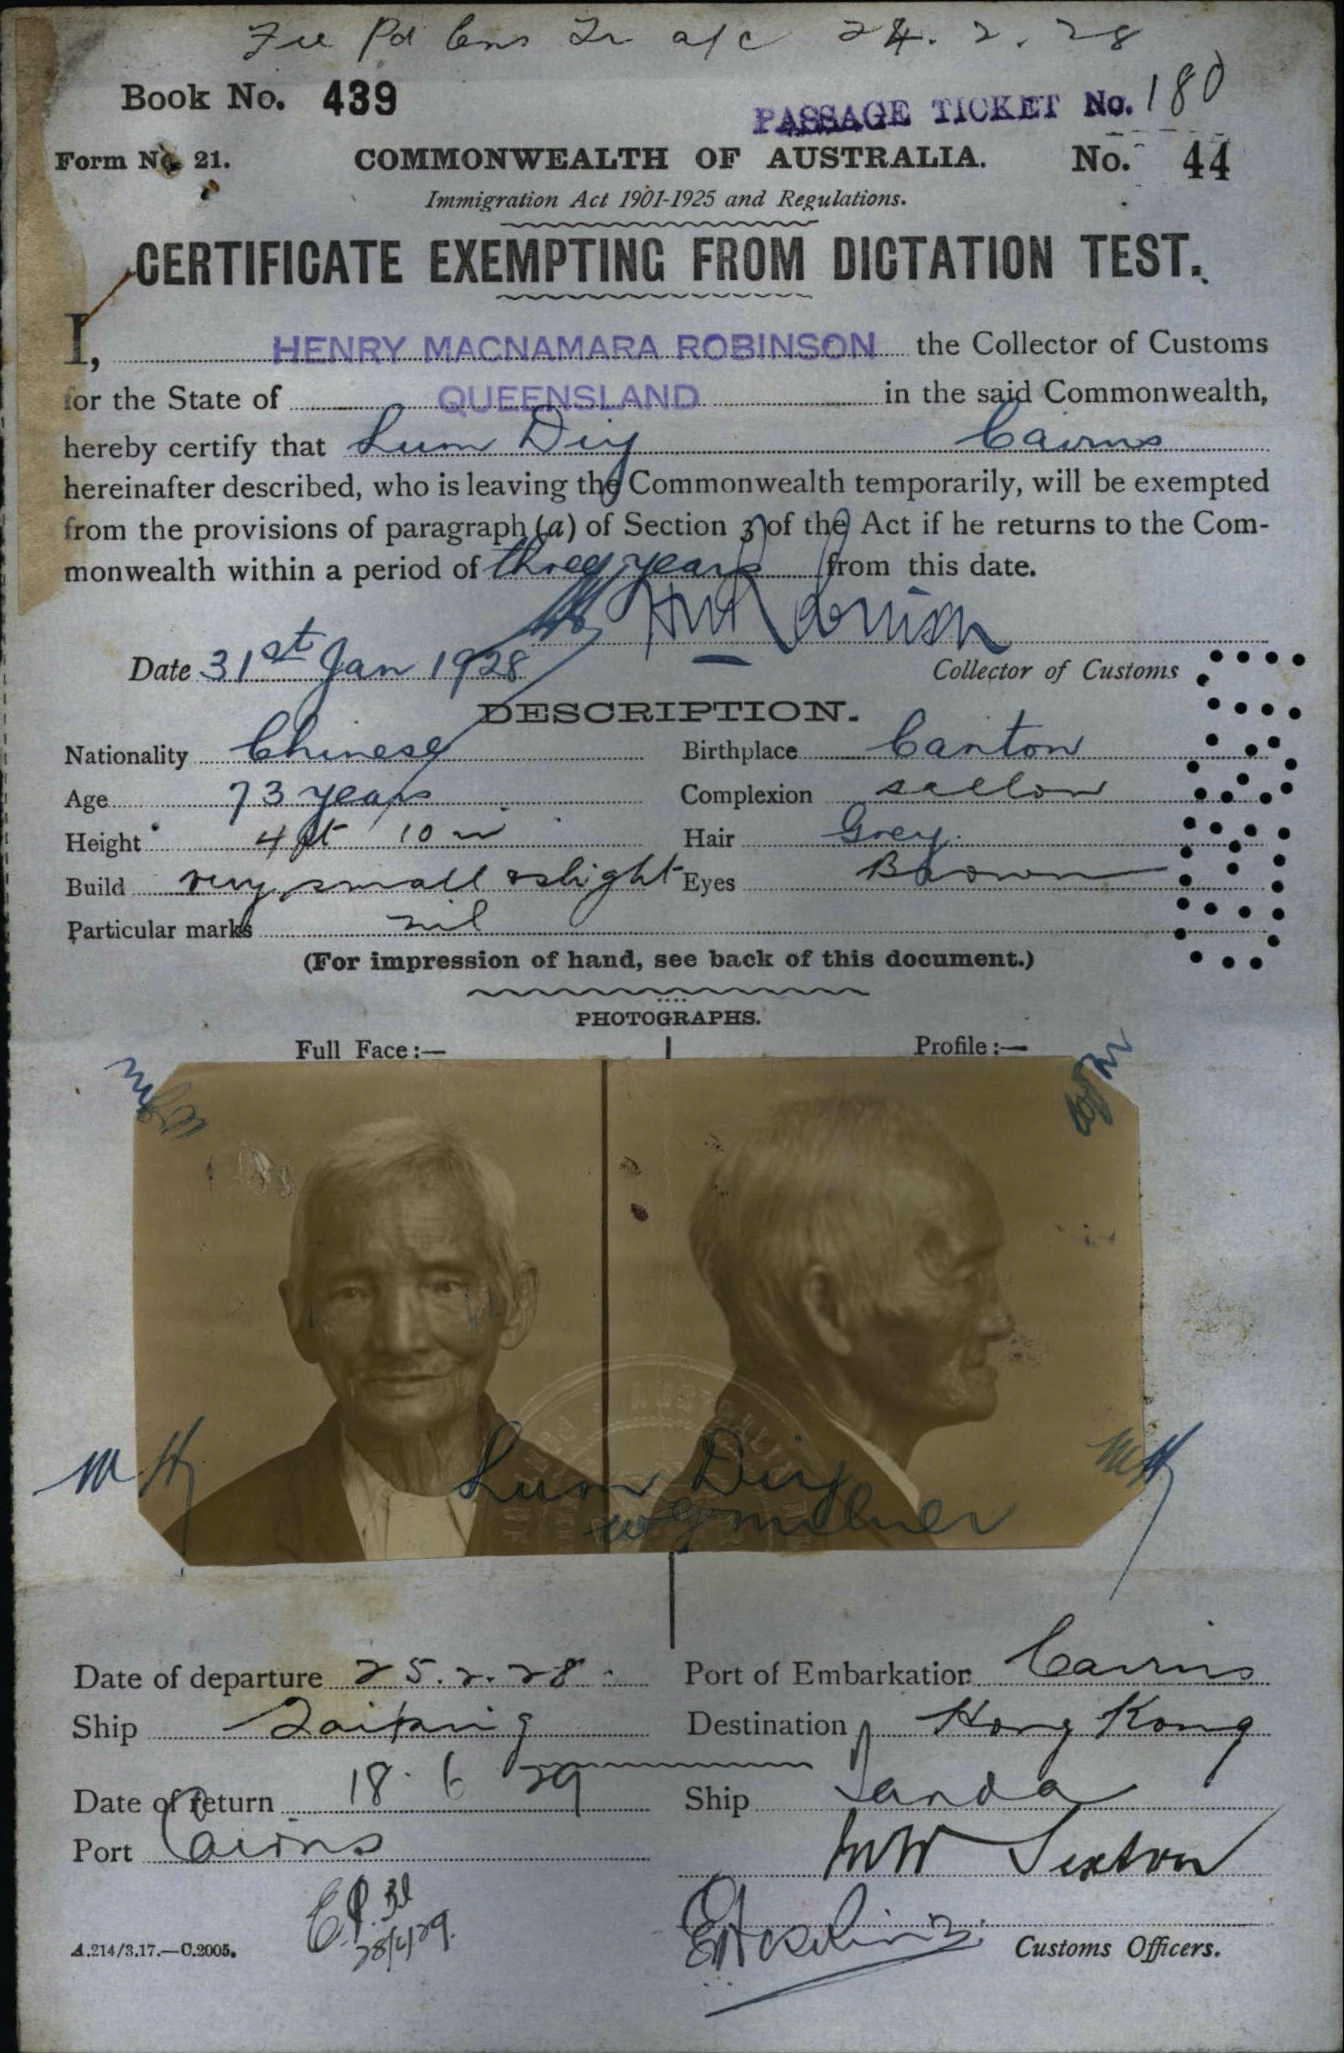 Fee Pd Cons Tr a/c 24.2.28
Book No. 439
PASSAGE TICKET No. 180
Form No. 21. COMMONWEALTH OF AUSTRALIA. No. 44
Immigration Act 1901-1925 and Regulations.
CERTIFICATE EXEMPTING FROM DICTATION TEST.
I, HENRY MACNAMARA ROBINSON the Collector of Customs
for the State of QUEENSLAND in the said Commonwealth,
hereby certify that Lum Diy Cairns
hereinafter described, who is leaving the Commonwealth temporarily, will be exempted
from the provisions of paragraph (a) of Section 3 of the Act if he returns to the Com-
monwealth within a period of three years from this date.
HM Robinson
Date 31st Jan 1928 Collector of Customs
DESCRIPTION.
Nationality Chinese Birthplace Canton
Age 73 years Complexion sallow
Height 4 ft 10 in Hair Grey.
Build very small & slight Eyes Brown
Particular marks nil
(For impression of hand, see back of this document.)
PHOTOGRAPHS.
Full Face:— Profile:—
Lum Diy
W G Milner
Date of departure 25.2.28 Port of Embarkation Cairns
Ship Taiping Destination Hong Kong
Date of return 18.6.29 Ship Tanda
Port Cairns
A.214/3.17.—C.2005. Customs Officers.